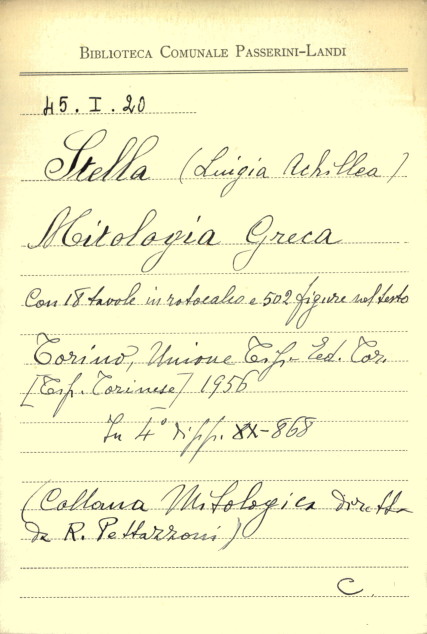 BIBLIOTECA COMUNALE PASSERINI-LANDI
45.I.20
Stella (Luigia Achillea)
Mitologia Greca
Con 18 tavole in rotocalco e 502 figure nel testo
Torino, Unione Tip.- Ed. Tor.
[Tip. Torinese] 1956
In 4° di pp. XX-868
(Collana Mitologica diretta
da R. Pettazzoni)
C.